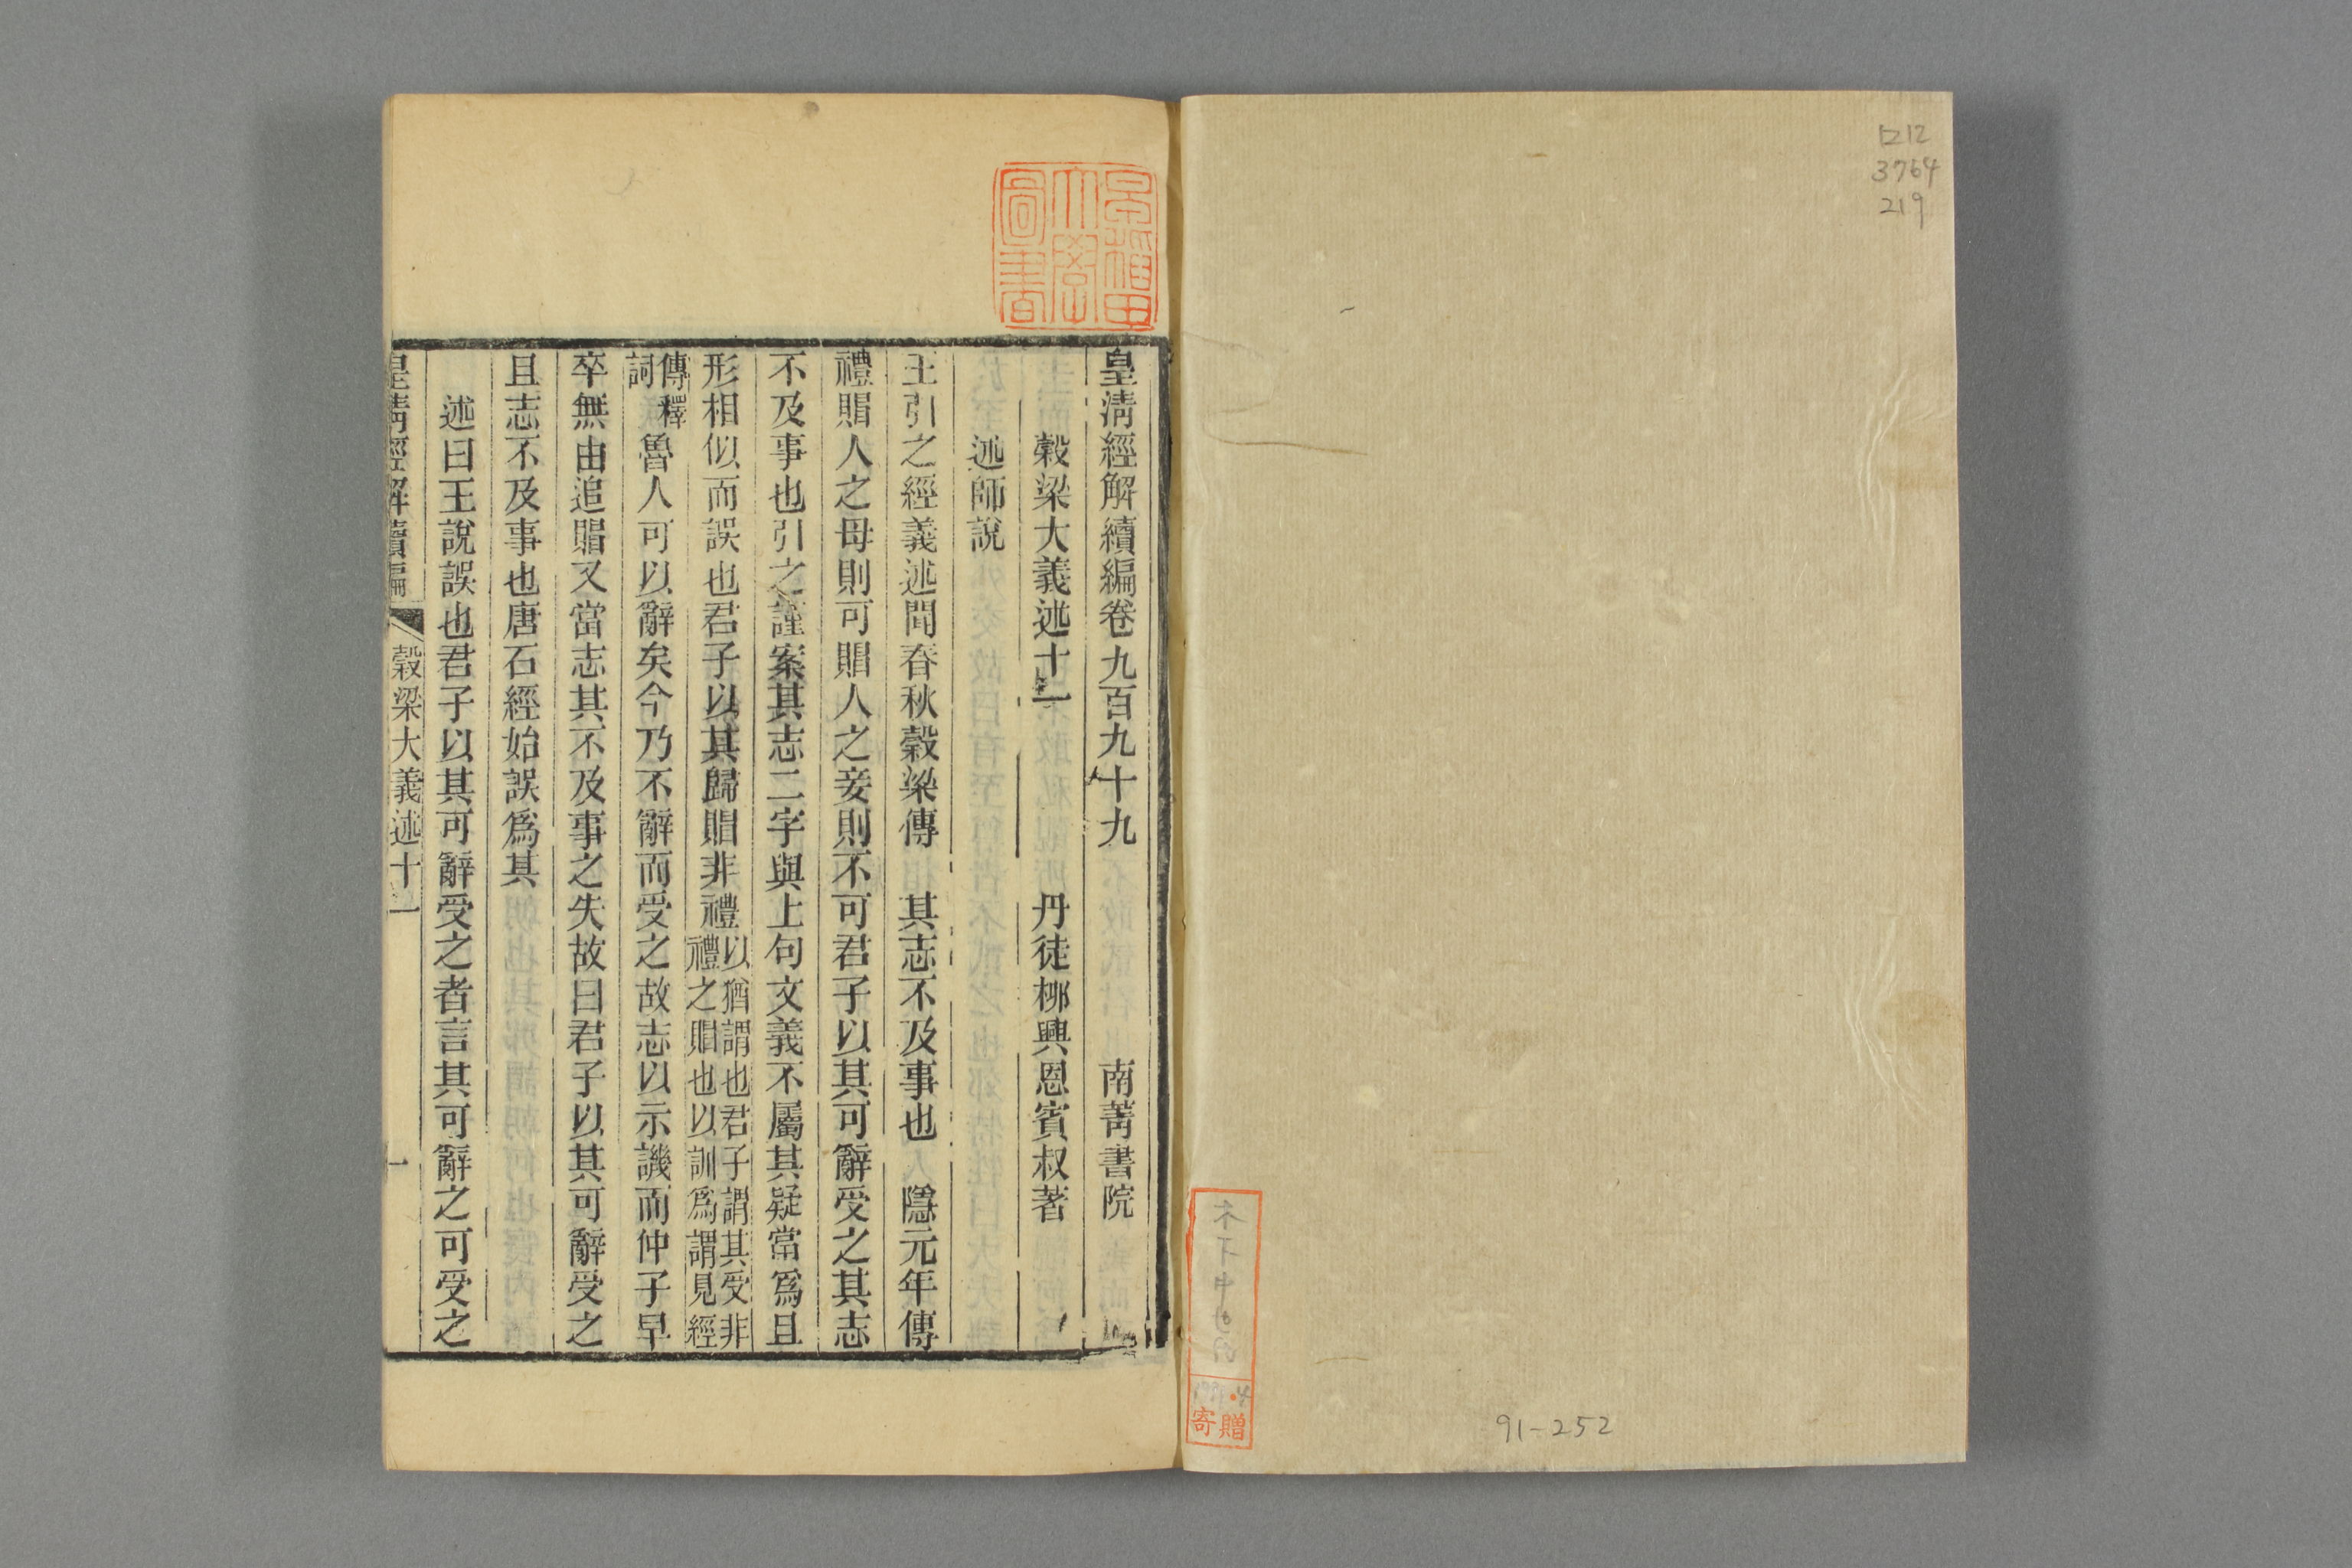 ロ12
3764
219
91-252
寄贈
早稲田
大學
圖書
皇清經解續編卷九百九十九 南菁書院
穀梁大義述十一 丹徒栁興恩賓叔著
述師說
王引之經義述聞春秋穀梁傳 其志不及事也 隱元年傳
禮賵人之母則可賵人之妾則不可君子以其可辭受之其志
不及事也引之謹案其志二字與上句文義不屬其疑當爲且
形相似而誤也君子以其歸賵非禮以猶謂也君子謂其受非禮之賵也以訓爲謂見經
傳釋詞魯人可以辭矣今乃不辭而受之故志以示譏而仲子早
卒無由追賵又當志其不及事之失故曰君子以其可辭受之
且志不及事也唐石經始誤爲其
述曰王說誤也君子以其可辭受之者言其可辭之可受之
皇清經解續編 穀梁大義述十一 一